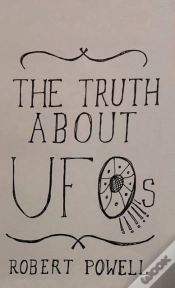 THE TRUTH
ABOUT
UFOs
ROBERT POWELL
wook